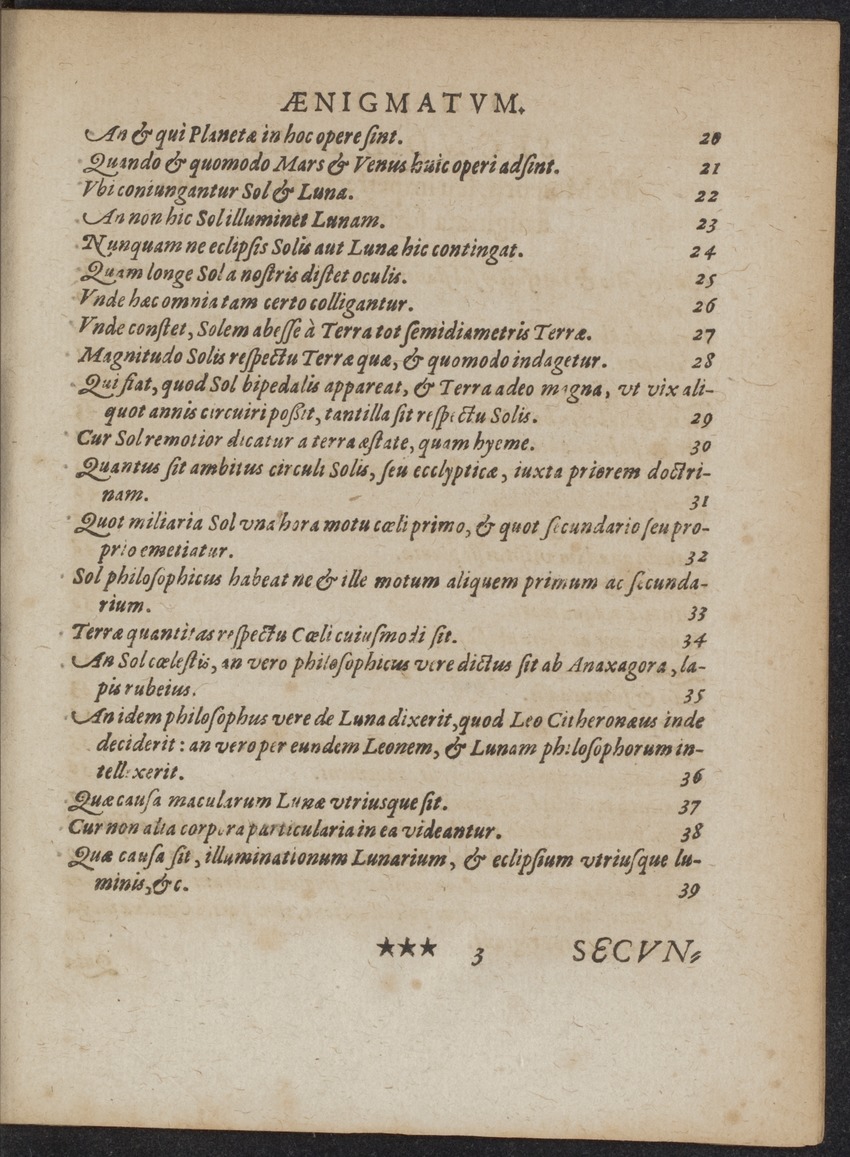 ÆNIGMATVM.
An & qui Planetæ in hoc opere ſint. 20
Quando & quomodo Mars & Venus huic operi adſint. 21
Vbi coniungantur Sol & Luna. 22
An non hic Sol illuminet Lunam. 23
Nunquam ne eclipſis Solis aut Lunæ hic contingat. 24
Quam longe Sol a noſtris diſtet oculis. 25
Vnde hæc omnia tam certo colligantur. 26
Vnde conſtet, Solem abeſſe à Terra tot ſemidiametris Terræ. 27
Magnitudo Solis reſpectu Terræ quæ, & quomodo indagetur. 28
Qui fiat, quod Sol bipedalis appareat, & Terra adeo magna, vt vix ali-
quot annis circuiri poßit, tantilla ſit reſpectu Solis. 29
Cur Sol remotior dicatur a terra æſtate, quam hyeme. 30
Quantus ſit ambitus circuli Solis, ſeu ecclypticæ, iuxta priorem doctri-
nam. 31
Quot miliaria Sol vna hora motu cœli primo, & quot ſecundario ſeu pro-
prio emetiatur. 32
Sol philoſophicus habeat ne & ille motum aliquem primum ac ſecunda-
rium. 33
Terræ quantitas reſpectu Cœli cuiuſmodi ſit. 34
An Sol cœleſtis, an vero philoſophicus vere dictus ſit ab Anaxagora, la-
pis rubeius. 35
An idem philoſophus vere de Luna dixerit, quod Leo Citheronæus inde
deciderit: an vero per eundem Leonem, & Lunam philoſophorum in-
tellexerit. 36
Quæ cauſa macularum Lunæ vtriusque ſit. 37
Cur non alia corpora particularia in ea videantur. 38
Quæ cauſa ſit, illuminationum Lunarium, & eclipſium vtriuſque lu-
minis, &c. 39
★★★ 3 SECVN-